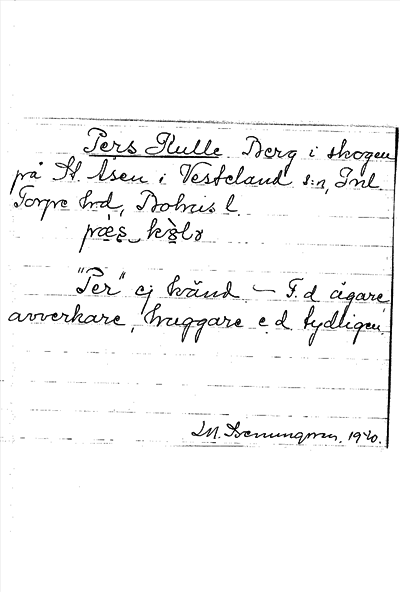 Pers Kulle Berg i skogen
på St. Åsen i Vesteland s:n, Inl.
Torpe hd, Bohus l.
"Per" ej känd – F.d. ägare,
avverkare, huggare e.d. tydligen.
1940.